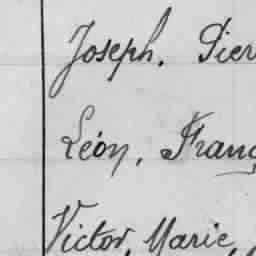 Joseph, Pier
Léon, Franç
Victor, Marie,